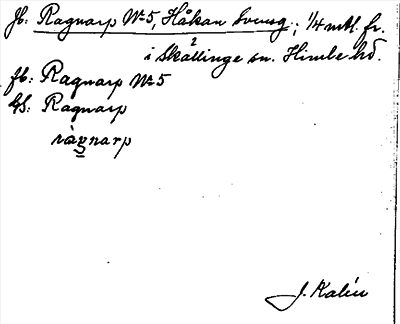 Jb: Ragnarp No 5, Håkan Svensg.; 1/4 mtl. fr.
i Skällinge sn. Himle hd.
Jb: Ragnarp No 5
GS: Ragnarp
ràgnarp
J. Kalén